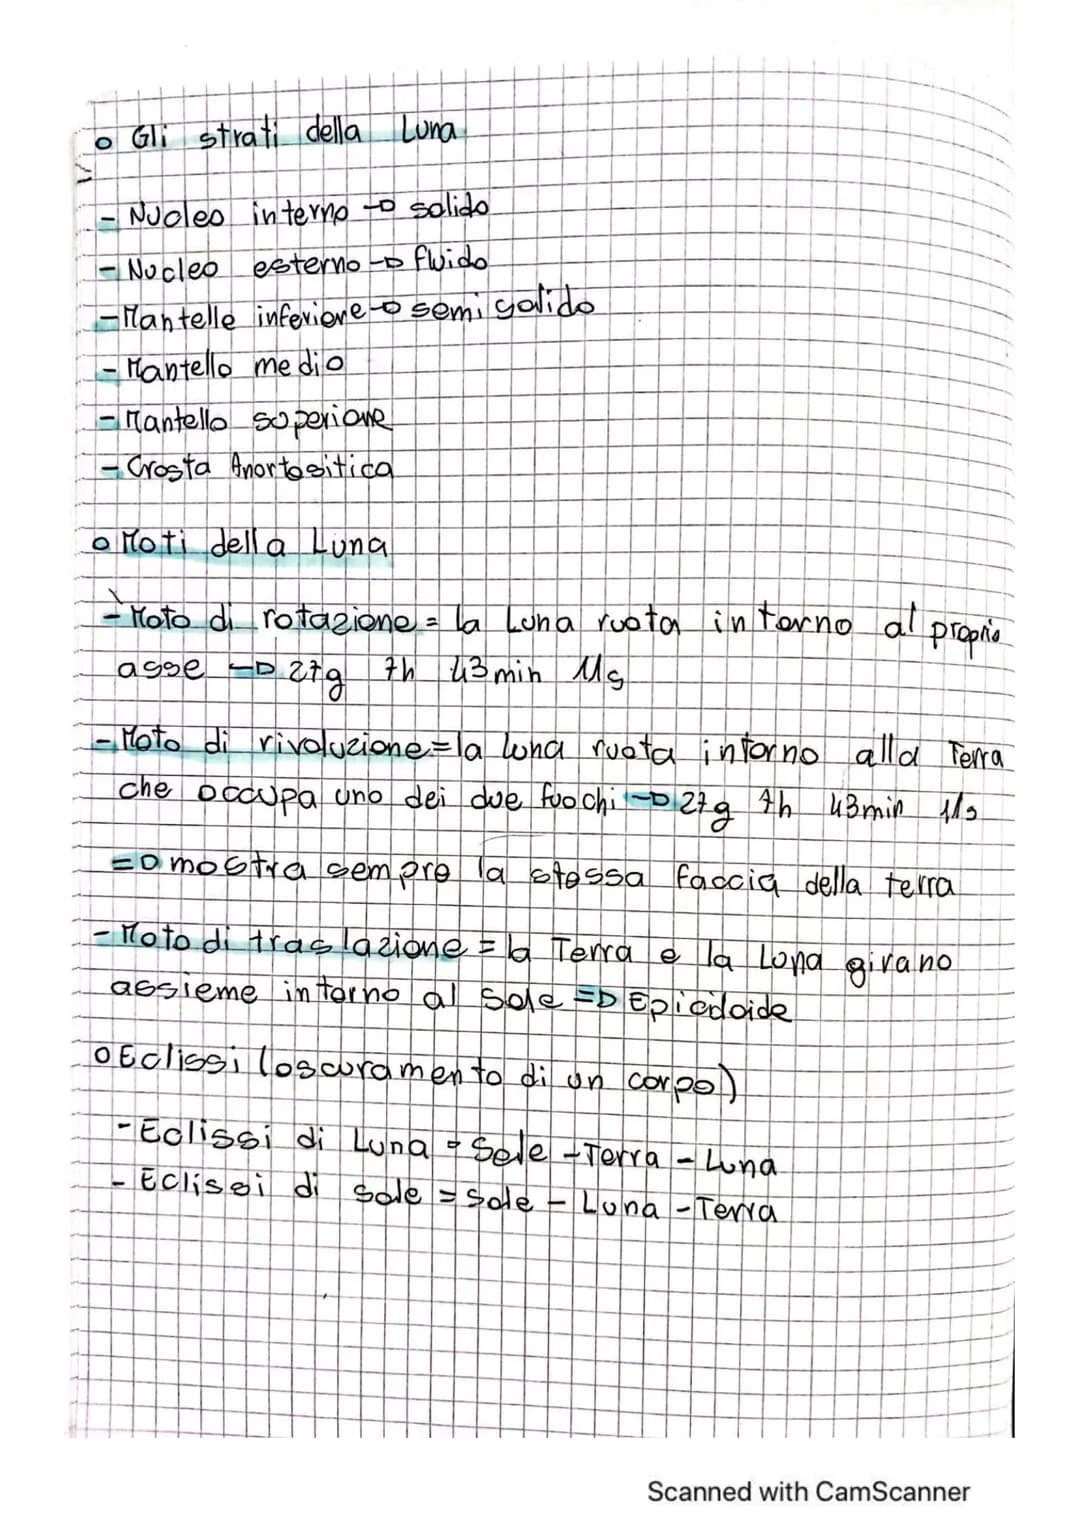 o Gli strati della Luna
- Nucleo interno → solido
- Nucleo esterno → fluido
- Mantello inferiore → semi solido
- Mantello medio
- Mantello superiore
- Crosta Anortositica
o Moti della Luna
- Moto di rotazione = la Luna ruota intorno al proprio
asse → 27g 7h 43min 11s
- Moto di rivoluzione = la luna ruota intorno alla Terra
che occupa uno dei due fuochi → 27g 7h 43min 11s
⇒ mostra sempre la stessa faccia della terra
- Moto di traslazione = la Terra e la Luna girano
assieme intorno al Sole ⇒ Epicicloide
o Eclissi (oscuramento di un corpo)
- Eclissi di Luna = Sole - Terra - Luna
- Eclissi di sole = sole - Luna - Terra
Scanned with CamScanner